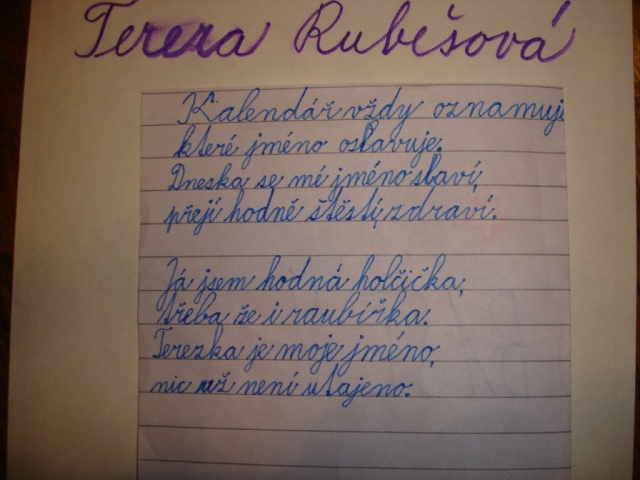 Tereza Rubešová
Kalendář vždy oznamuje
které jméno oslavuje.
Dneska se mé jméno slaví,
přejí hodně štěstí, zdraví.
Já jsem hodná holčička,
třeba že i raubířka.
Terezka je moje jméno,
nic už není utajeno.